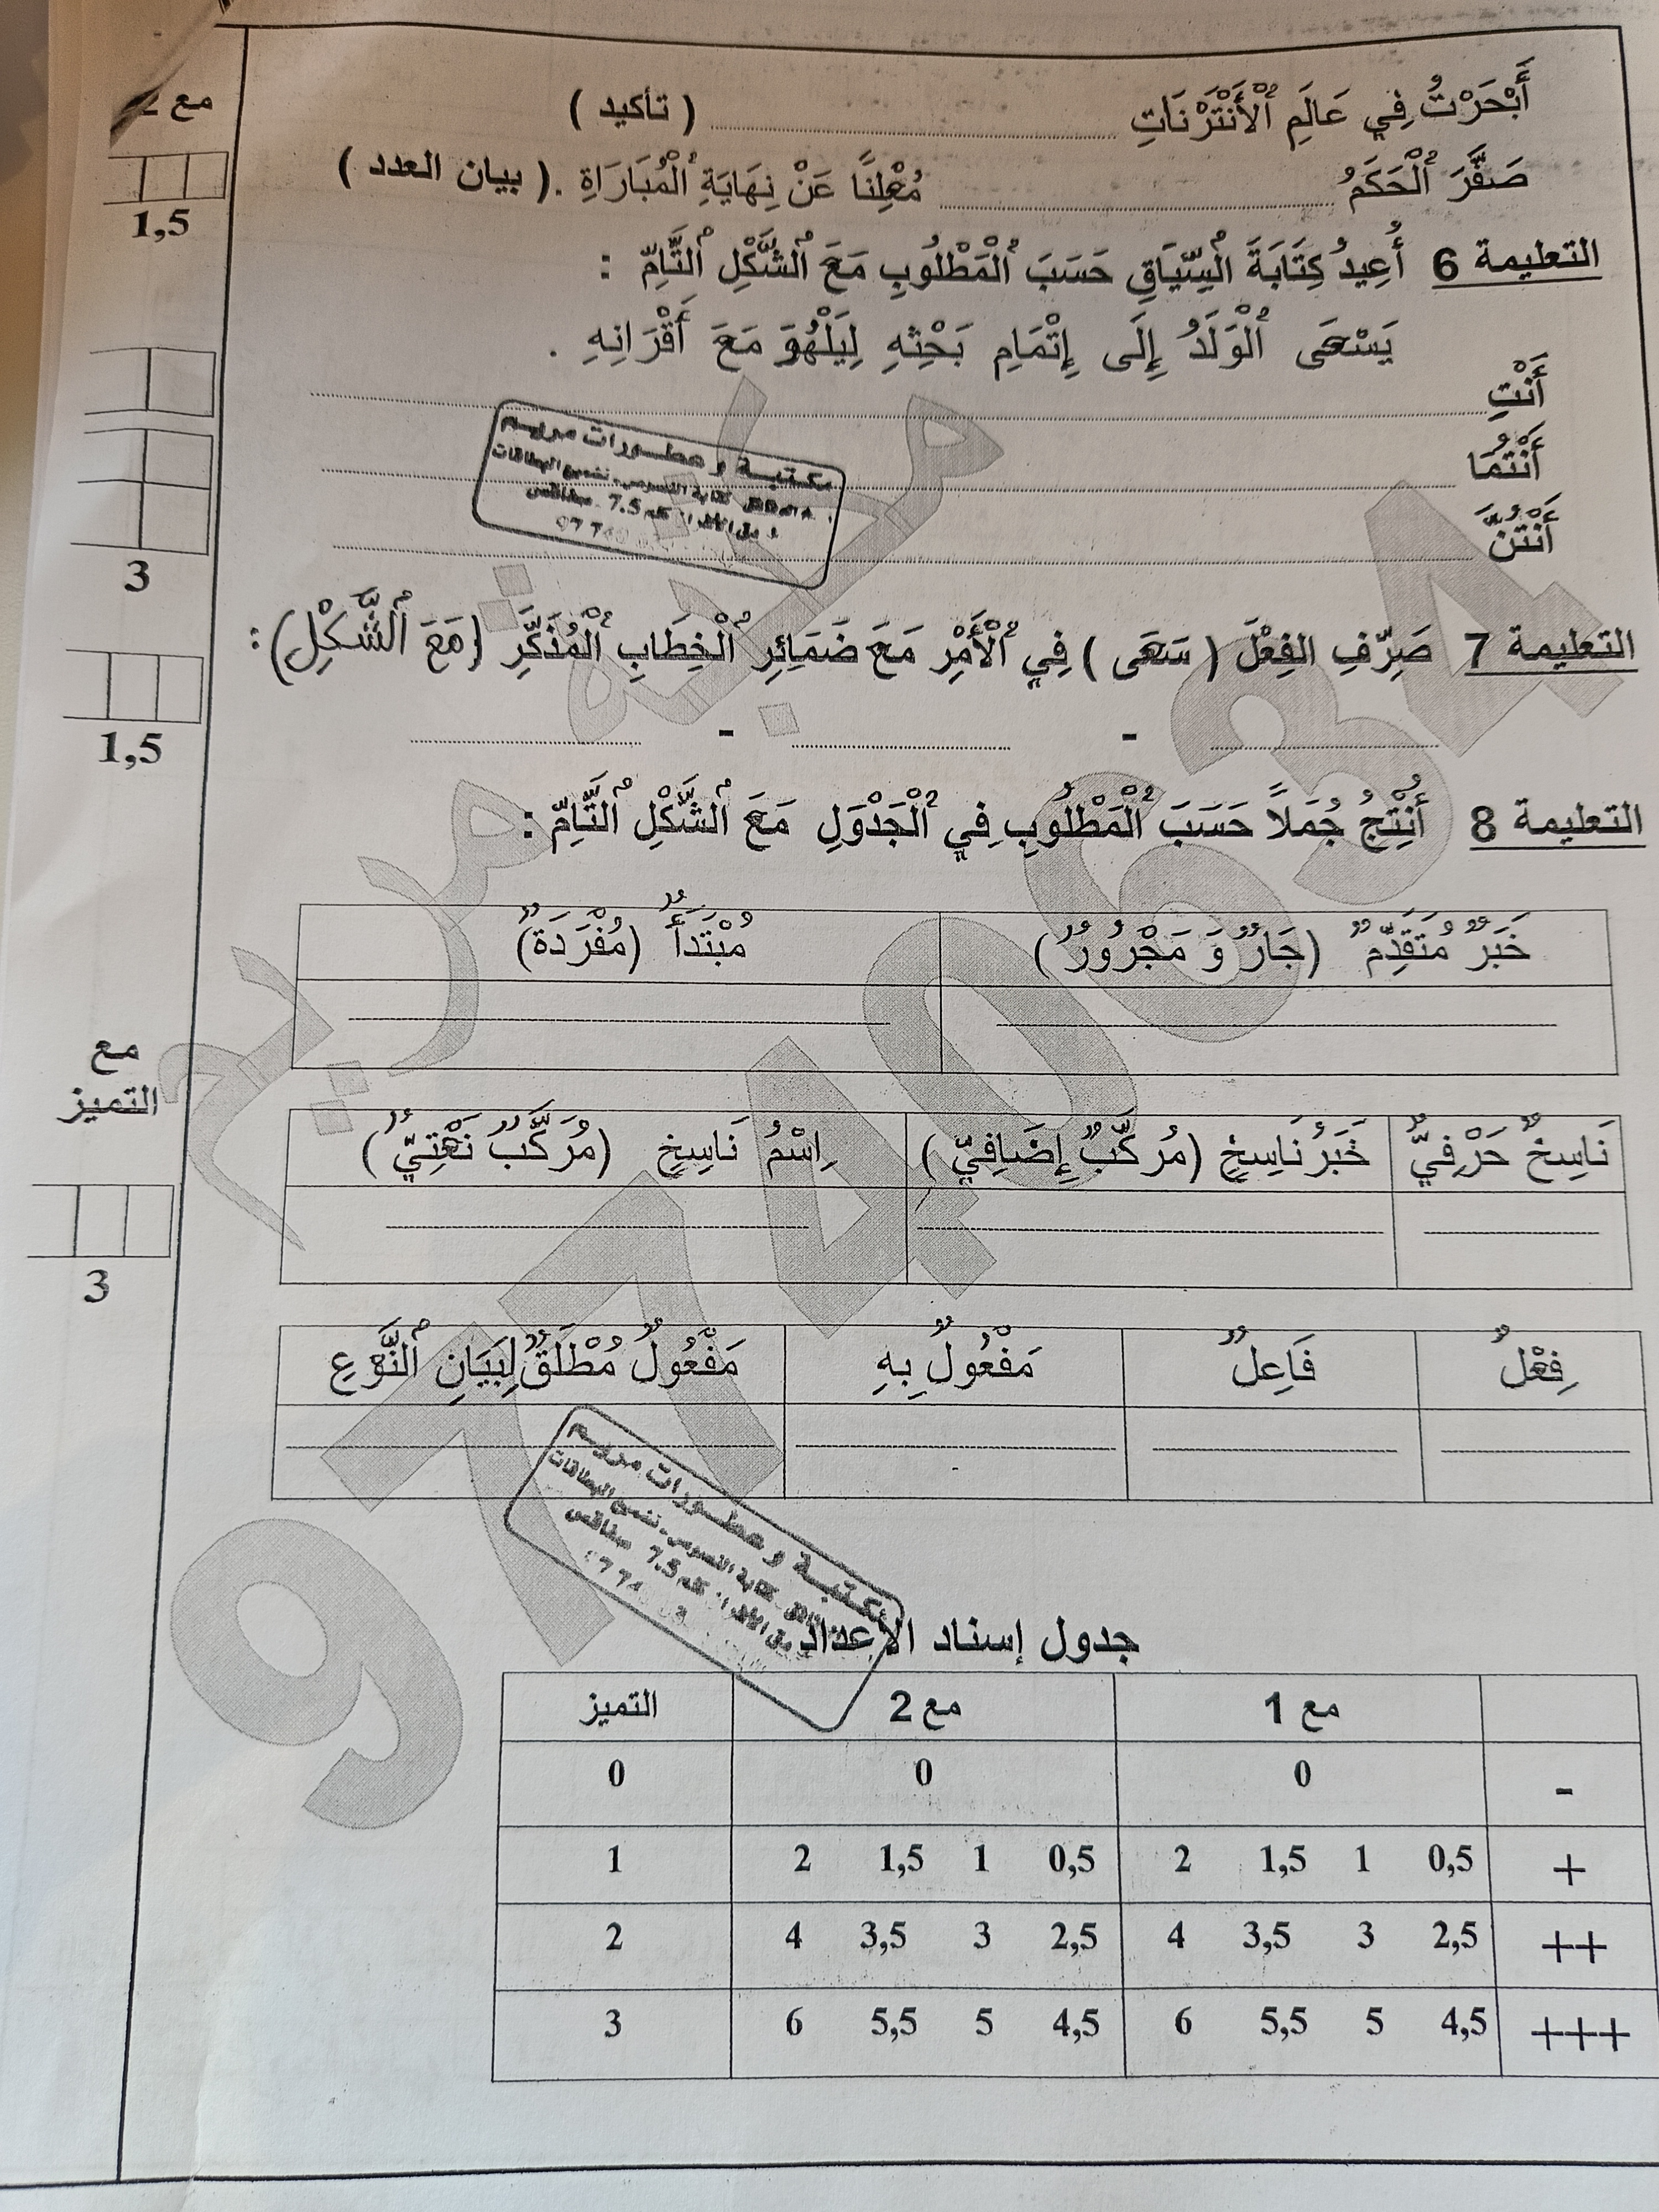 مع
أَبْحَرْتُ فِي عَالَمِ اُلْأَنْتَرْنَاتِ ( تأكيد )
صَفَّرَ اُلْحَكَمُ مُعْلِنًا عَنْ نِهَايَةِ اُلْمُبَارَاةِ . ( بيان العدد )
1,5
التعليمة 6 أُعِيدُ كِتَابَةَ اُلسِّيَاقِ حَسَبَ اُلْمَطْلُوبِ مَعَ اُلشَّكْلِ اُلتَّامِّ :
يَسْعَى اُلْوَلَدُ إِلَى إِتْمَامِ بَحْثِهِ لِيَلْهُوَ مَعَ أَقْرَانِهِ .
أَنْتِ
أَنْتُمَا
أَنْتُنَّ
3
مكتبة و عطورات مريم
كلم 7.5 صفاقس
التعليمة 7 صَرِّفِ الفِعْلَ ( سَعَى ) فِي اُلْأَمْرِ مَعَ ضَمَائِرِ اُلْخِطَابِ اُلْمُذَكَّرِ (مَعَ اُلشَّكْلِ) :
- -
1,5
التعليمة 8 أُنْتِجُ جُمَلاً حَسَبَ اُلْمَطْلُوبِ فِي اُلْجَدْوَلِ مَعَ اُلشَّكْلِ اُلتَّامِّ :
خَبَرٌ مُتَقَدِّمٌ (جَارٌ وَ مَجْرُورٌ) مُبْتَدَأٌ (مُفْرَدَةٌ)
مع
التميز
نَاسِخٌ حَرْفِيٌّ خَبَرُ نَاسِخٍ (مُرَكَّبٌ إِضَافِيٌّ) اِسْمُ نَاسِخٍ (مُرَكَّبٌ نَعْتِيٌّ)
3
فِعْلٌ فَاعِلٌ مَفْعُولٌ بِهِ مَفْعُولٌ مُطْلَقٌ لِبَيَانِ اُلنَّوْعِ
مكتبة و عطورات مريم
كلم 7.5 صفاقس
جدول إسناد الأعداد
مع 1 مع 2 التميز
- 0 0 0
+ 0,5 1 1,5 2 0,5 1 1,5 2 1
++ 2,5 3 3,5 4 2,5 3 3,5 4 2
+++ 4,5 5 5,5 6 4,5 5 5,5 6 3